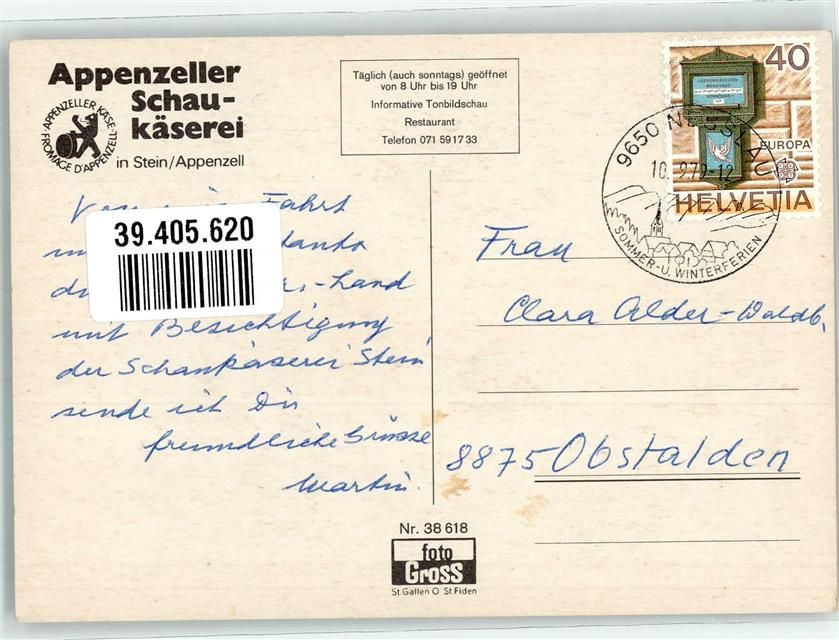 Appenzeller
Schau-
käserei
in Stein/Appenzell
APPENZELLER KÄSE
FROMAGE D'APPENZELL
Täglich (auch sonntags) geöffnet
von 8 Uhr bis 19 Uhr
Informative Tonbildschau
Restaurant
Telefon 071 59 17 33
40
EUROPA
HELVETIA
9650 NESSLAU
10. 9.79-12
SOMMER- U. WINTERFERIEN
39.405.620
Fahrt
-Land
mit Besichtigung
der Schaukäserei Stein
sende ich Dir
freundliche Grüsse
Martin.
Frau
Clara Alder-Waldb.
8875 Obstalden
Nr. 38 618
foto
Gross
St.Gallen O St.Fiden